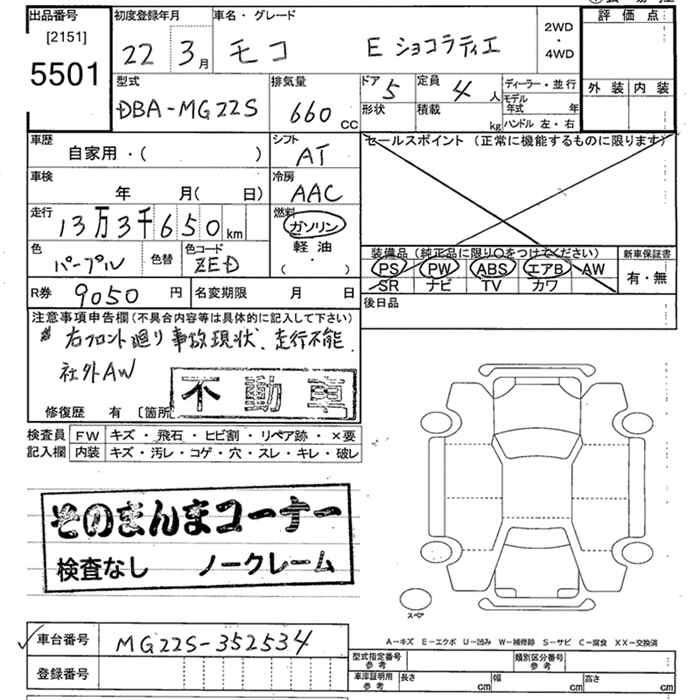 出品番号 初度登録年月 車名・グレード 2WD ・ 4WD 評価点
[2151]
5501 22 3月 モコ E ショコラティエ
型式 排気量 ドア 5 定員 4人 ディーラー・並行 外装 内装
DBA-MG22S 660 CC 形状 積載 kg モデル年式 年
ハンドル 左・右
車歴 自家用・( ) シフト AT セールスポイント (正常に機能するものに限ります)
車検 年 月( 日) 冷房 AAC
走行 13万3千650km 燃料 ガソリン 軽油 ( ・ )
色 パープル 色替 色コード ZED
装備品 (純正品に限り○をつけてください) 新車保証書
PS PW ABS エアB AW 有・無
SR ナビ TV カワ
R券 9050円 名変期限 月 日 後日品
注意事項申告欄 (不具合内容等は具体的に記入して下さい)
右フロント廻り事故現状、走行不能
社外AW
不動車
修復歴 有 〔箇所
検査員 FW キズ・飛石・ヒビ割・リペア跡・×要
記入欄 内装 キズ・汚レ・コゲ・穴・スレ・キレ・破レ
そのまんまコーナー
検査なし ノークレーム
スペア
A-キズ E-エクボ U-凹み W-補修跡 S-サビ C-腐食 XX-交換済
車台番号 MG22S-352534
型式指定番号 参考 類別区分番号 参考
登録番号
車庫証明用 参考 長さ cm 幅 cm 高さ cm